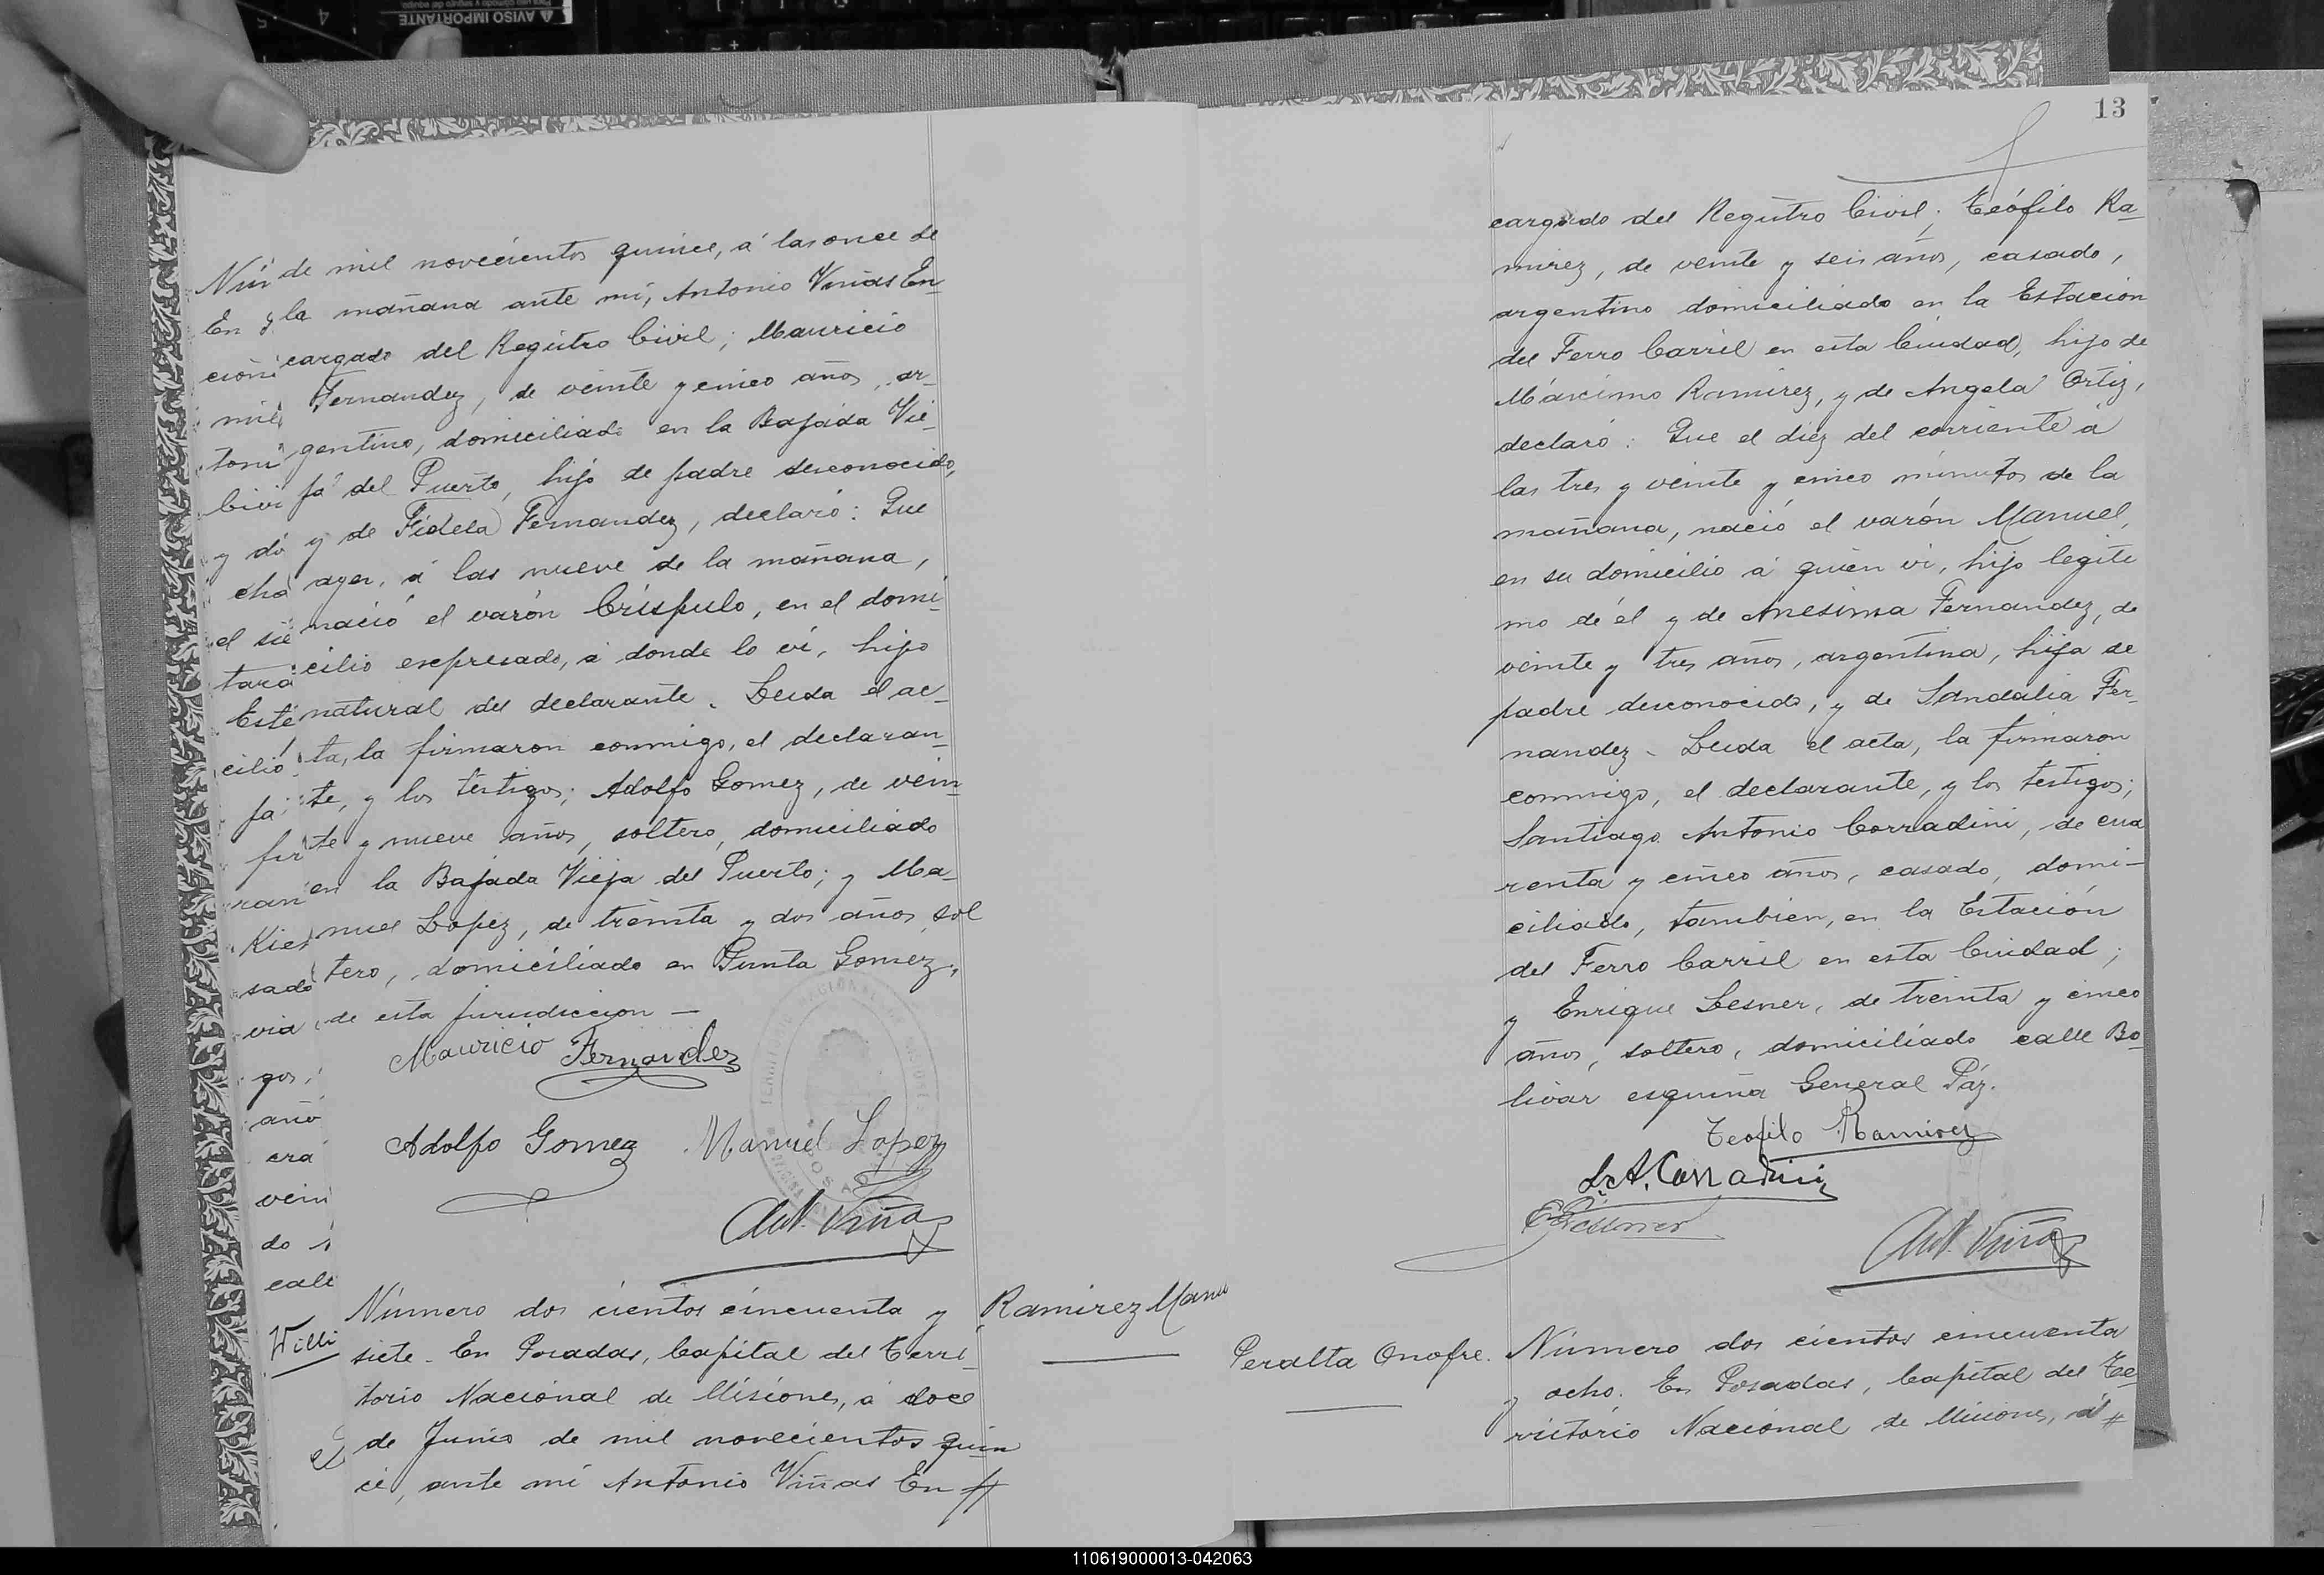 AVISO IMPORTANTE
13
Nú
En
mil
y do
el sie
Este
cilio
sado
gos,
año
do
call
Willi
de mil novecientos quince, á las once de
la mañana ante mi, Antonio Viñas En
cargado del Registro Civil; Mauricio
Fernandez, de veinte y cinco años, ar-
gentino, domiciliado en la Bajada Vie-
ja del Puerto, hijo de padre desconocido,
y de Fidela Fernandez, declaró: Que
ayer, á las nueve de la mañana,
nació el varón Críspulo, en el domi-
cilio expresado, a donde lo ví, hijo
natural del declarante. Leida el ac-
ta, la firmaron conmigo, el declaran-
te, y los testigos; Adolfo Gomez, de vein-
te y nueve años, soltero, domiciliado
en la Bajada Vieja del Puerto; y Ma-
nuel Lopez, de treinta y dos años, sol
tero, domiciliado en Punta Gomez,
de esta jurisdiccion —
Mauricio Fernandez
Adolfo Gomez Manuel Lopez
Ant. Viñas
Número dos cientos cincuenta y
siete. En Posadas, Capital del Terri-
torio Nacional de Misiones, á doce
de Junio de mil novecientos quin
ce, ante mi Antonio Viñas En #
Ramirez Manu
cargado del Registro Civil; Teófilo Ra-
mirez, de veinte y seis años, casado,
argentino domiciliado en la Estación
del Ferro Carril en esta Ciudad, hijo de
Máximo Ramirez, y de Angela Ortiz,
declaró: Que el diez del corriente á
las tres y veinte y cinco minutos de la
mañana, nació el varón Manuel,
en su domicilio á quien ví, hijo legíti
mo de él y de Anesima Fernandez, de
veinte y tres años, argentina, hija de
padre desconocido, y de Sandalia Fer-
nandez - Leida el acta, la firmaron
conmigo, el declarante, y los testigos;
Santiago Antonio Corradini, de cua
renta y cinco años, casado, domi-
ciliado, tambien, en la Estación
del Ferro Carril en esta Ciudad;
y Enrique Lesner, de treinta y cinco
años, soltero, domiciliado calle Bo-
livar esquina General Páz.
Teofilo Ramirez
S. A. Corradini
Ant. Viñas
Peralta Onofre.
Número dos cientos cincuenta
y ocho. En Posadas, Capital del Te-
rritorio Nacional de Misiones, á #
110619000013-042063